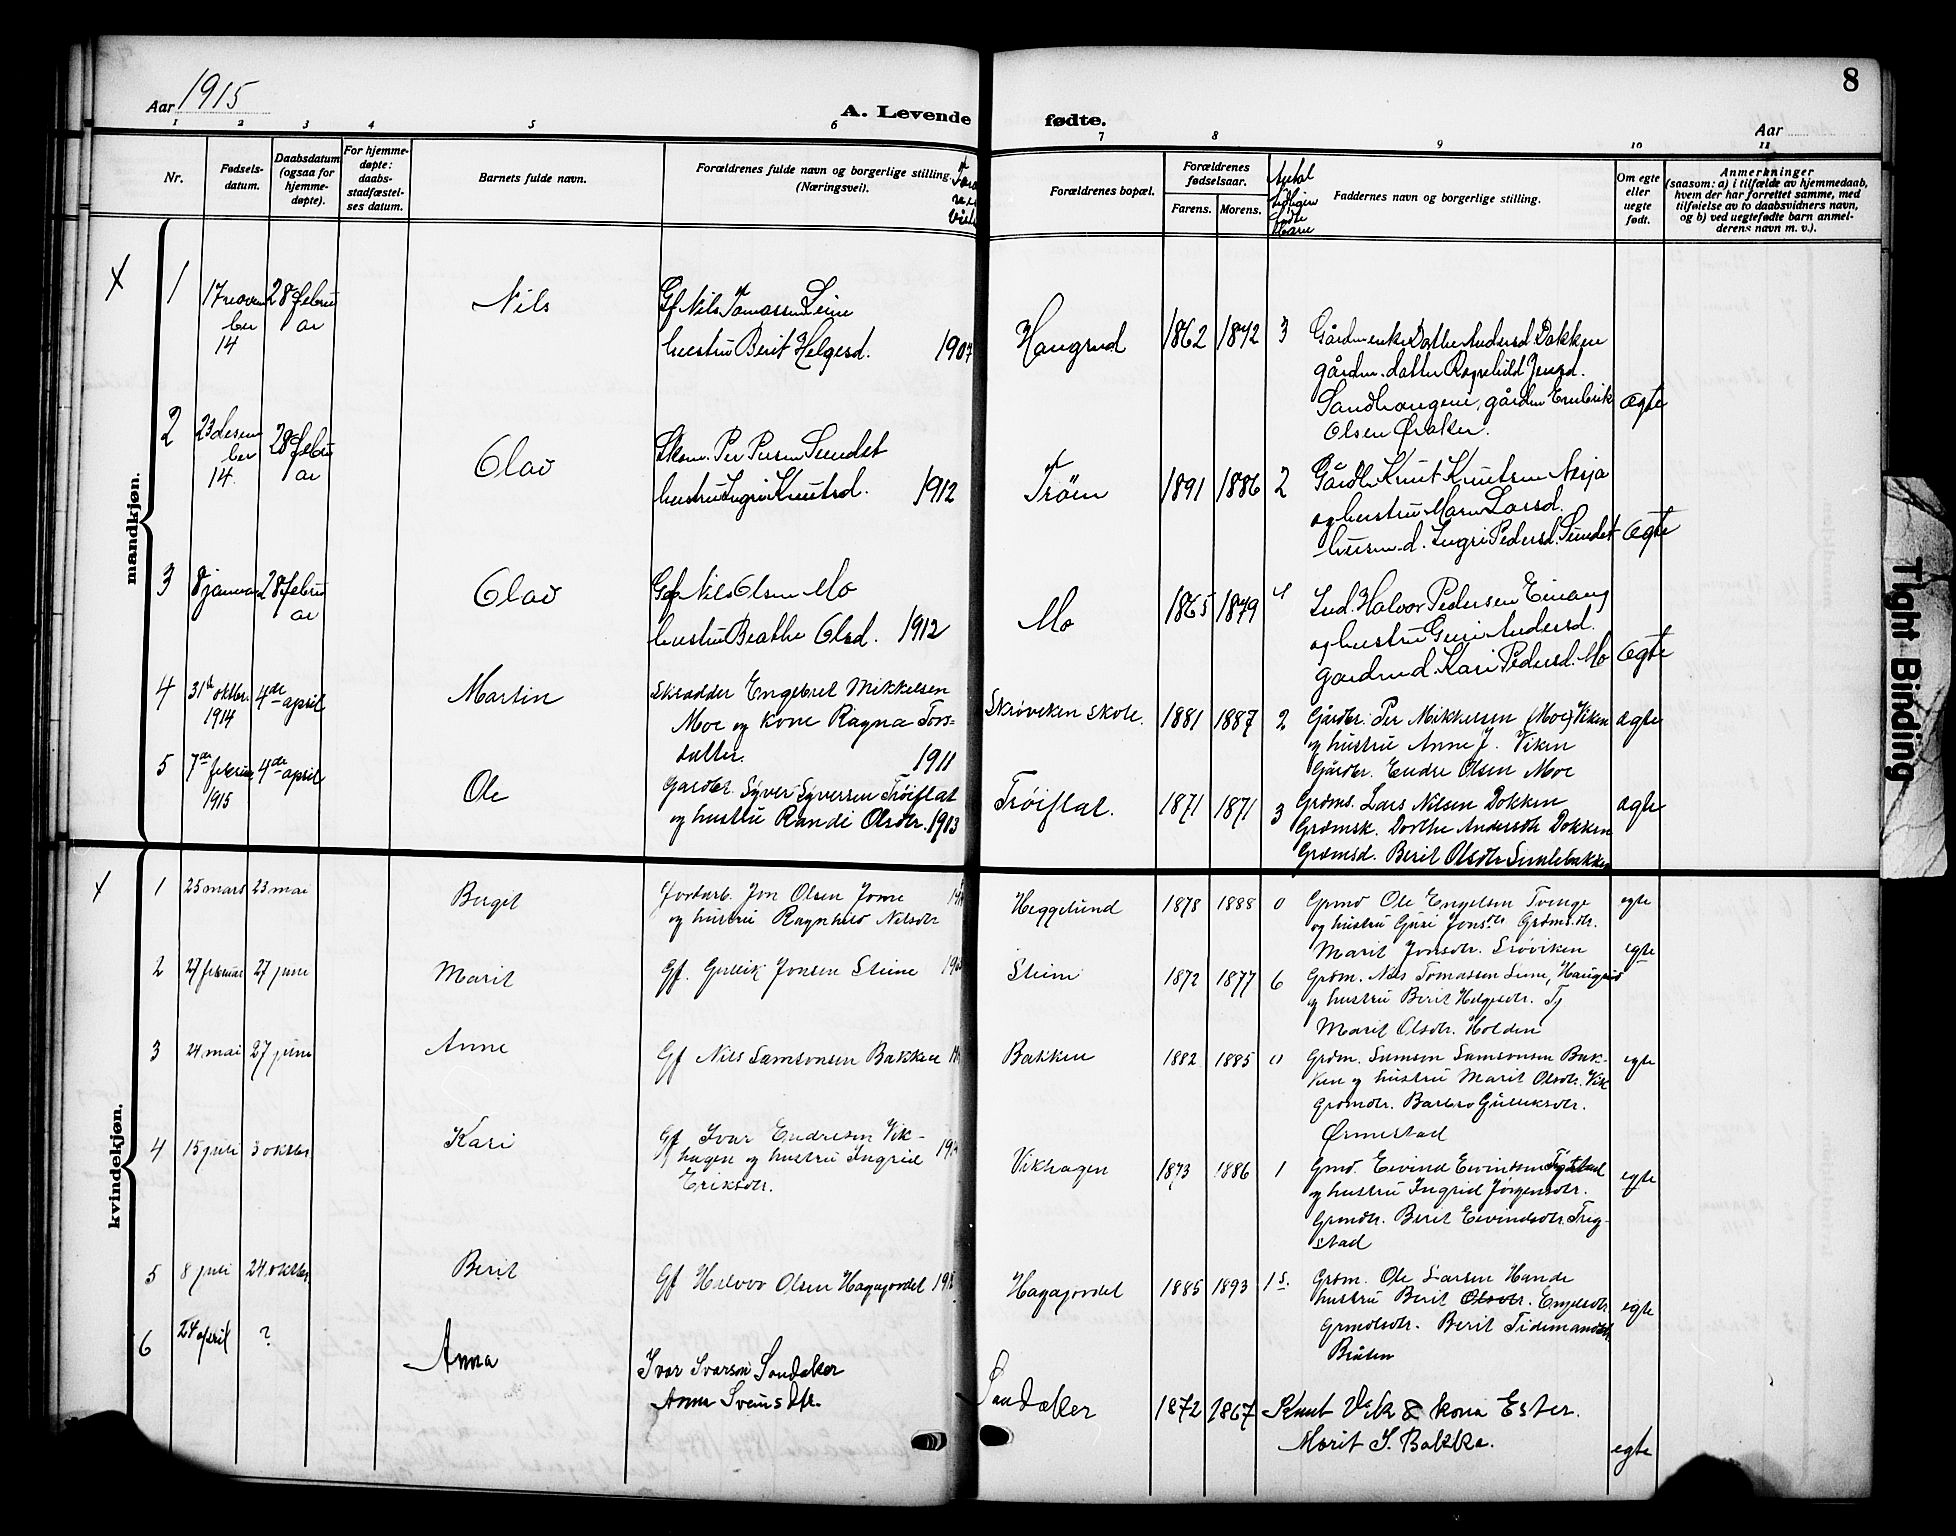 8
Aar 1915
A. Levende fødte.
Aar
1 2 3 4 5 6 7 8 9 10 11
Nr.
Fødsels-
datum.
Daabsdatum
(ogsaa for
hjemme-
døpte).
For hjemme-
døpte:
daabs-
stadfæstel-
ses datum.
Barnets fulde navn.
Forældrenes fulde navn og borgerlige stilling.
(Næringsvei).
Forældrenes bopæl.
Forældrenes
fødselsaar.
Farens. Morens.
Antal
tidligere
fødte
Børn
Faddernes navn og borgerlige stilling.
Om egte
eller
uegte
født.
Anmerkninger
(saasom: a) i tilfælde av hjemmedaab,
hvem der har forrettet samme, med
tilføielse av to daabsvidners navn,
og b) ved uegtefødte barn anmel-
derens navn m. v.).
mandkjøn.
1
17 novem
ber
14
28 febru
ar
Nils
Gf Nils Tomassen Leine
hustru Berit Helgesd. 1907
Haugrud
1862 1872 3
Gårdm enke Dothe Andersd Dokken
gårdm. datter Ragnhild Jensd.
Sandhaugene, gårdm Embrik
Olsen Øraker.
ægte
2
23 desem
ber
14.
28 febru
ar
Olav
Skom. Per Persen Sundet
hustru Ingri Knutsd. 1912
Trøim
1891 1886 2
Gårdbr Knut Knutsen Nesja
og hustru Maren Larsd.
husm. d. Ingri Pedersd. Sundet
ægte
3
8 januar
28 febru
ar
Olav
Gf Nils Olsen Mo
hustru Beathe Olsd. 1912
Mo
1865 1879 4
Ind. Halvor Pedersen Einang
og hustru Guri Andersd.
gardmd Kari Pedersd. Mo
ægte
4
31te oktbr.
1914
4de april
Martin
Skrædder Engebret Mikkelsen
Moe og kone Ragna Tors-
datter. 1911
Skrøviken skole.
1881 1887 2
Gårdbr. Per Mikkelsen (Moe) Viken
og hustru Anne J. Viken
Gårdbr. Endre Olsen Moe
ægte
5
7de februar
1915
4de april
Ole
Gardbr. Syver Syversen Trøiflat
og hustru Randi Olsdtr. 1903
Trøiflat.
1871 1871 3
Grdms. Lars Nilsen Dokken
Grdmsk. Dorthe Andersdtr Dokken
Grdmsd. Berit Olsdtr Simlebakken
ægte
kvindekjøn.
1
25 mars 23 mai
Birgit
Jordarb. Jon Olsen Jome
og hustru Ragnhild Nilsdtr
Heggelund
1878 1888 0
Grmd Ole Engelsen Tvenge
og hustru Guri Jonsdtr Grdms.dtr.
Marit Jonsdtr. Srøviken
egte
2
27 februar 27 juni
Marit
Gf. Gullik Jonsen Steine
Steine
1872 1877 6
Grdm. Nils Tomassen Leine, Haugrud
og hustru Berit Helgesdtr. Tj
Marit Olsdtr. Holden
egte
3
24. mai 27 juni
Anne
Gf Nils Samsonsen Bakken
Bakken
1882 1885 0
Grdm. Samson Samsonsen Bak-
ken og hustru Marit Olsdtr. Vik
Grdmdtr. Barbro Gulliksdtr.
Ørmestad
egte
4
15 juli 3 oktbr.
Kari
Gf Ivar Endresen Vik-
hagen og hustru Ingrid
Eriksdtr.
Vikhagen
1873 1886 1
Gmd. Eivind Eivindsen Trøgstad
og hustru Ingrid Jørgensdtr.
Grmdtr. Berit Eivindsdtr. Treg-
stad
egte
5
8 juli 24. oktbr.
Berit
Gf Halvor Olsen Hagajordet
Hagajordet
1885 1893 1 s.
Grdm. Ole Larsen Hande
hustru Berit Olsdtr. Engelsdtr
Grmdsdtr. Berit Tidemandsdtr.
Bråten
egte
6
24 april ?
Anna
Ivar Ivarson Sondaker
Anna Sveinsdtr.
Sandaker
1872 1867
Knut Vik & kona Ester.
Marit I. Bakke.
egte
Tight Binding